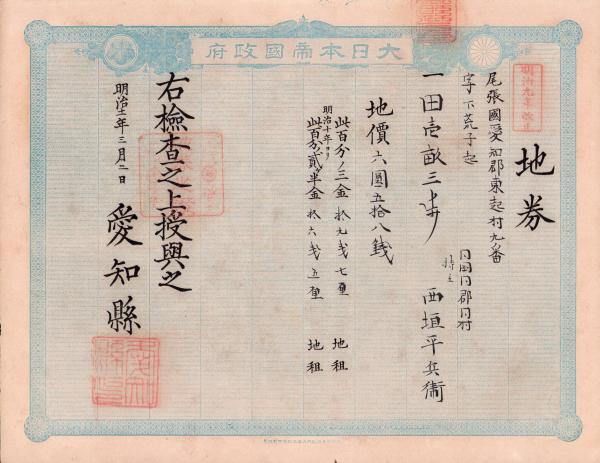 府政國帝本日大
明治九年改正
地券
尾張國愛知郡東起村九番
字下荒子起
一田壱畝三歩
同國同郡同村
持主
西垣平兵衛
地價六圓五拾八銭
此百分ノ三金拾九銭七厘 地租
明治十年ヨリ
此百分ノ貳半金拾六銭五厘 地租
右檢査之上授與之
明治十一年三月二日
愛知縣